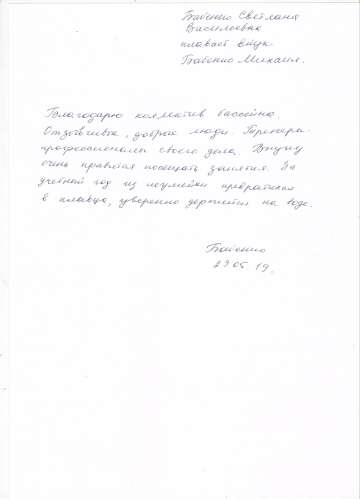 Бабенко Светлана
Васильевна
плавает внук
Бабенко Михаил.
Благодарю коллектив бассейна.
Отзывчивые, добрые люди. Тренеры-
профессионалы своего дела. Внуку
очень нравятся посещать занятия. За
учебный год из неумейки превратился
в пловца, уверенно держится на воде.
Бабенко
29 05 19.